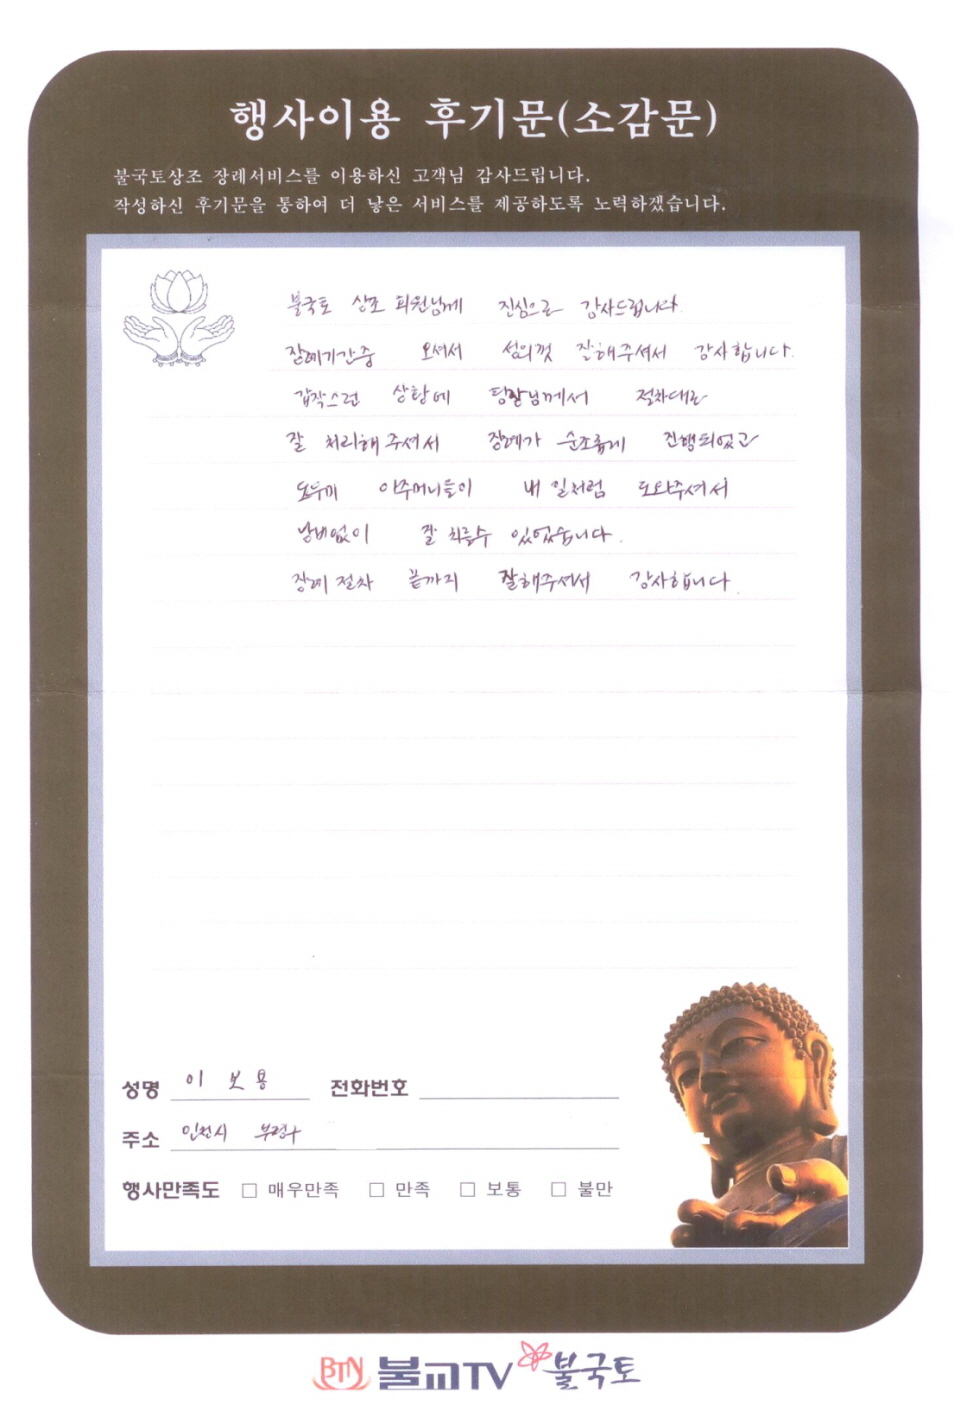 행사이용 후기문(소감문)
불국토상조 장례서비스를 이용하신 고객님 감사드립니다.
작성하신 후기문을 통하여 더 낳은 서비스를 제공하도록 노력하겠습니다.
불국토 상조 회원님께 진심으로 감사드립니다
장예기간중 오셔서 성의껏 잘해주셔서 감사합니다.
갑작스런 상황에 팀장님께서 절차대로
잘 처리해주셔서 장례가 순조롭게 진행되었고
도우미 아주머니들이 내 일처럼 도와주셔서
낭비없이 잘 치를수 있었습니다.
장례 절차 끝까지 잘해주셔서 감사합니다.
성명 이보용 전화번호
주소 인천시 부평구
행사만족도 □ 매우만족 □ 만족 □ 보통 □ 불만
BTN 불교TV 불국토